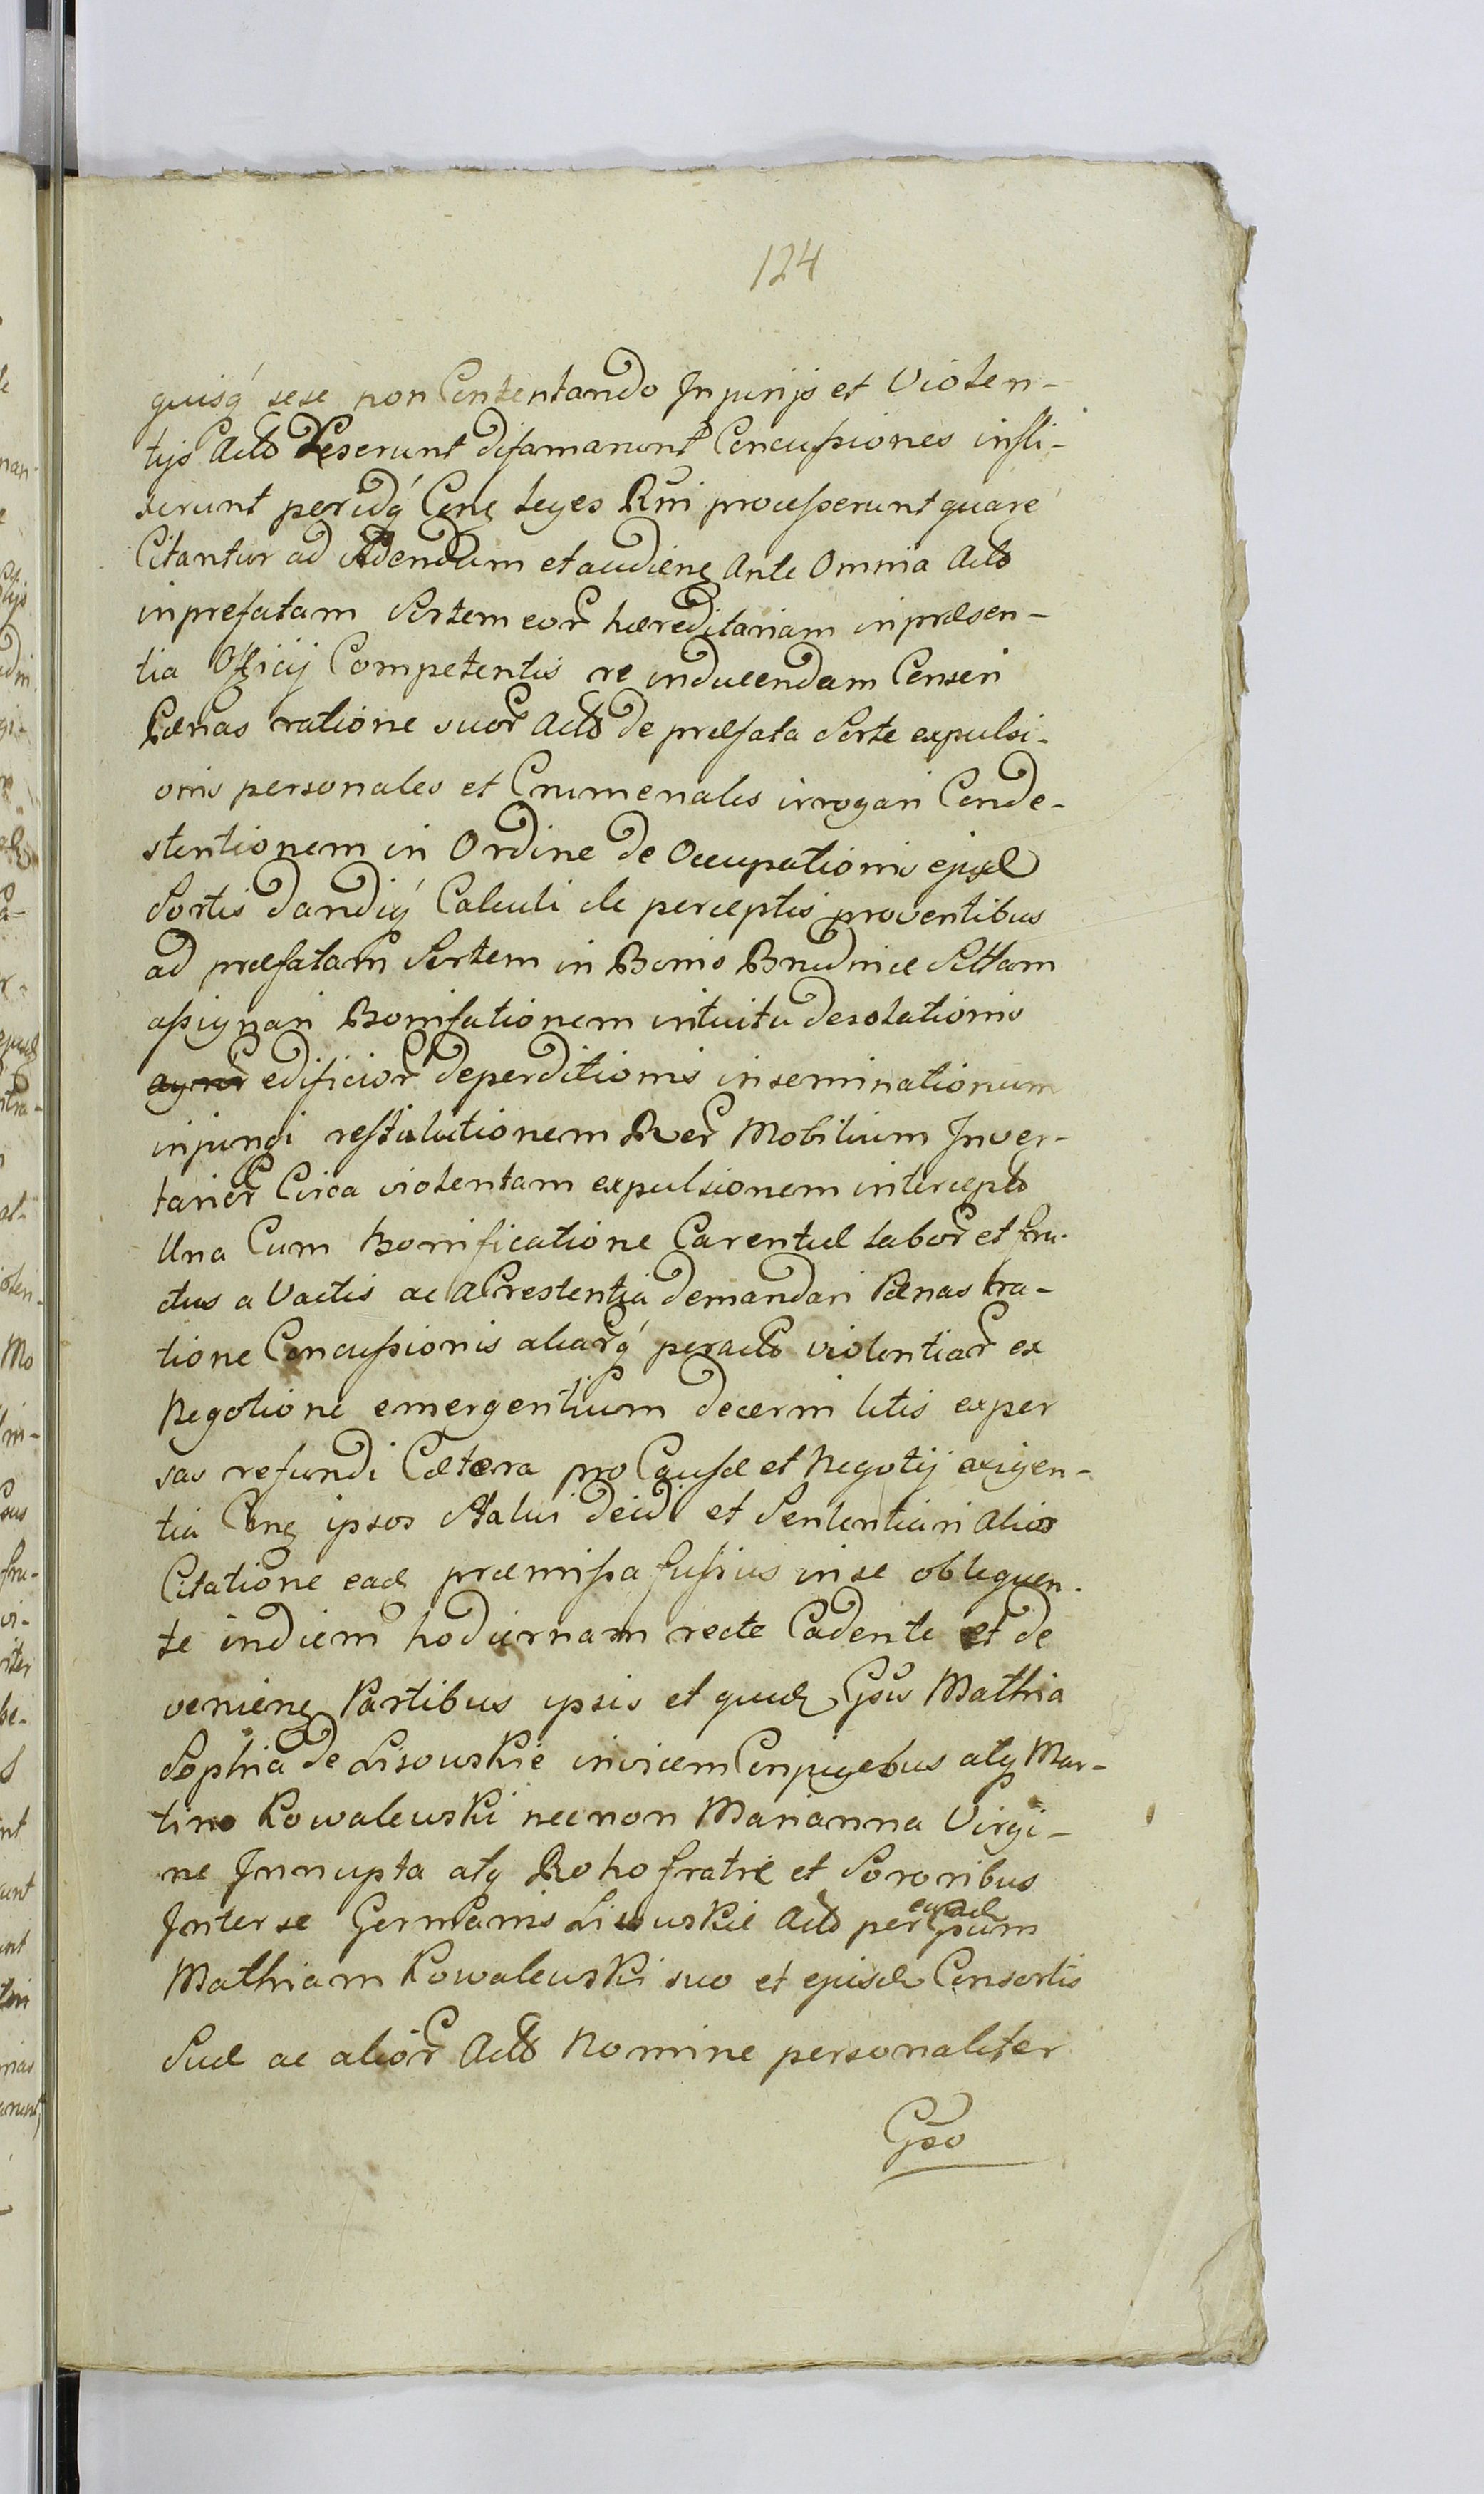 124
quisq́ sese non Contentando Injurijs et Violen-
tijs Acto Leserunt difamarunt Concussiones infli-
xerunt peridq́ Cont leges Rni processerunt quare
Citantur ad Videndum et audiend Ante Omnia Acto
in prefatam Sortem eor hæreditariam in præsen-
tia Officij Competentis re inducendam Censeri
Pænas ratione suor Acto de præfata Sorte expulsi-
onis personales et Crumenales irrogari Conde-
stentionem in Ordine de Occupationis ejusd
Sortis dandiq́ Calculi de perceptis proventibus
ad præfatam Sortem in Bonis Brudnice Sittam
assignari Bonifationem intuitu desolationis
agror edificior deperditionis inseminationum
injungi restitutionem Rer Mobilium Inven-
tarior Circa violentam expulsionem intercepto
Una Cum Bonificatione Carentiæ labor et fru-
ctus a Vactis ac a Crestentia demandari Pænas ra-
tione Concussionis aliarq́ peracto violentiar ex
Negotione emergentium decerni litis expen
sas refundi Cætera pro Causæ et Negotij exigen-
tia Cont ipsos Statui decidi et Sententiari alias
Citatione ead præmissa fusius in se obloquen-
te in diem hodiernam recte Cadente et de
venient Partibus ipsis et quid Gsis Mathia
Sophia de Lisowskie invicem Conjugebus atq Mar-
tino Kowalewski necnon Marianna Virgi-
ne Innupta atq Roho fratre et Sororibus
Inter se Germanis Lisowskie Acto per Gsum
Mathiam Kowalewski suo et ejusd Consortis
Suæ ac alior Acto Nomine personaliter
Gso